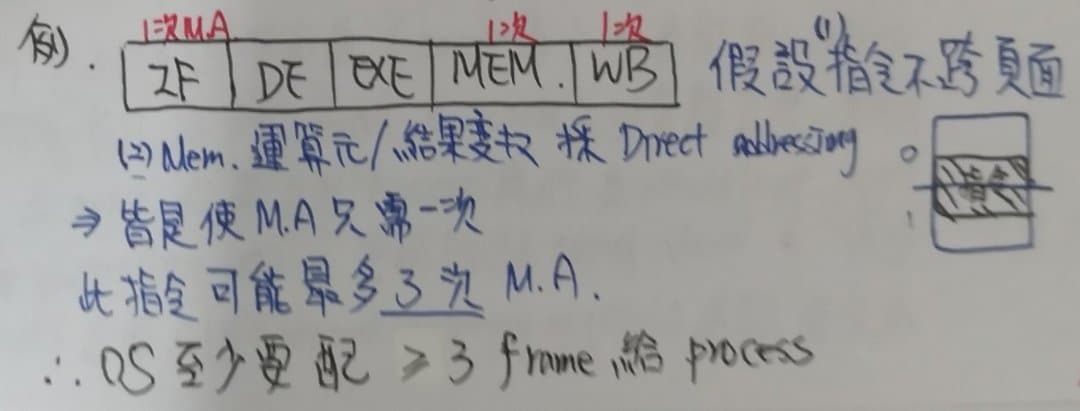 例). 1次M.A 1次 1次
IF DE EXE MEM. WB 假設(1)指令不跨頁面
(2) Mem. 運算元/結果変数 採 Direct addressing
0 指令
⇒ 皆是使 M.A 只需一次
1
此指令可能最多 3次 M.A.
∴ OS 至少要配 ≥ 3 frame 給 process